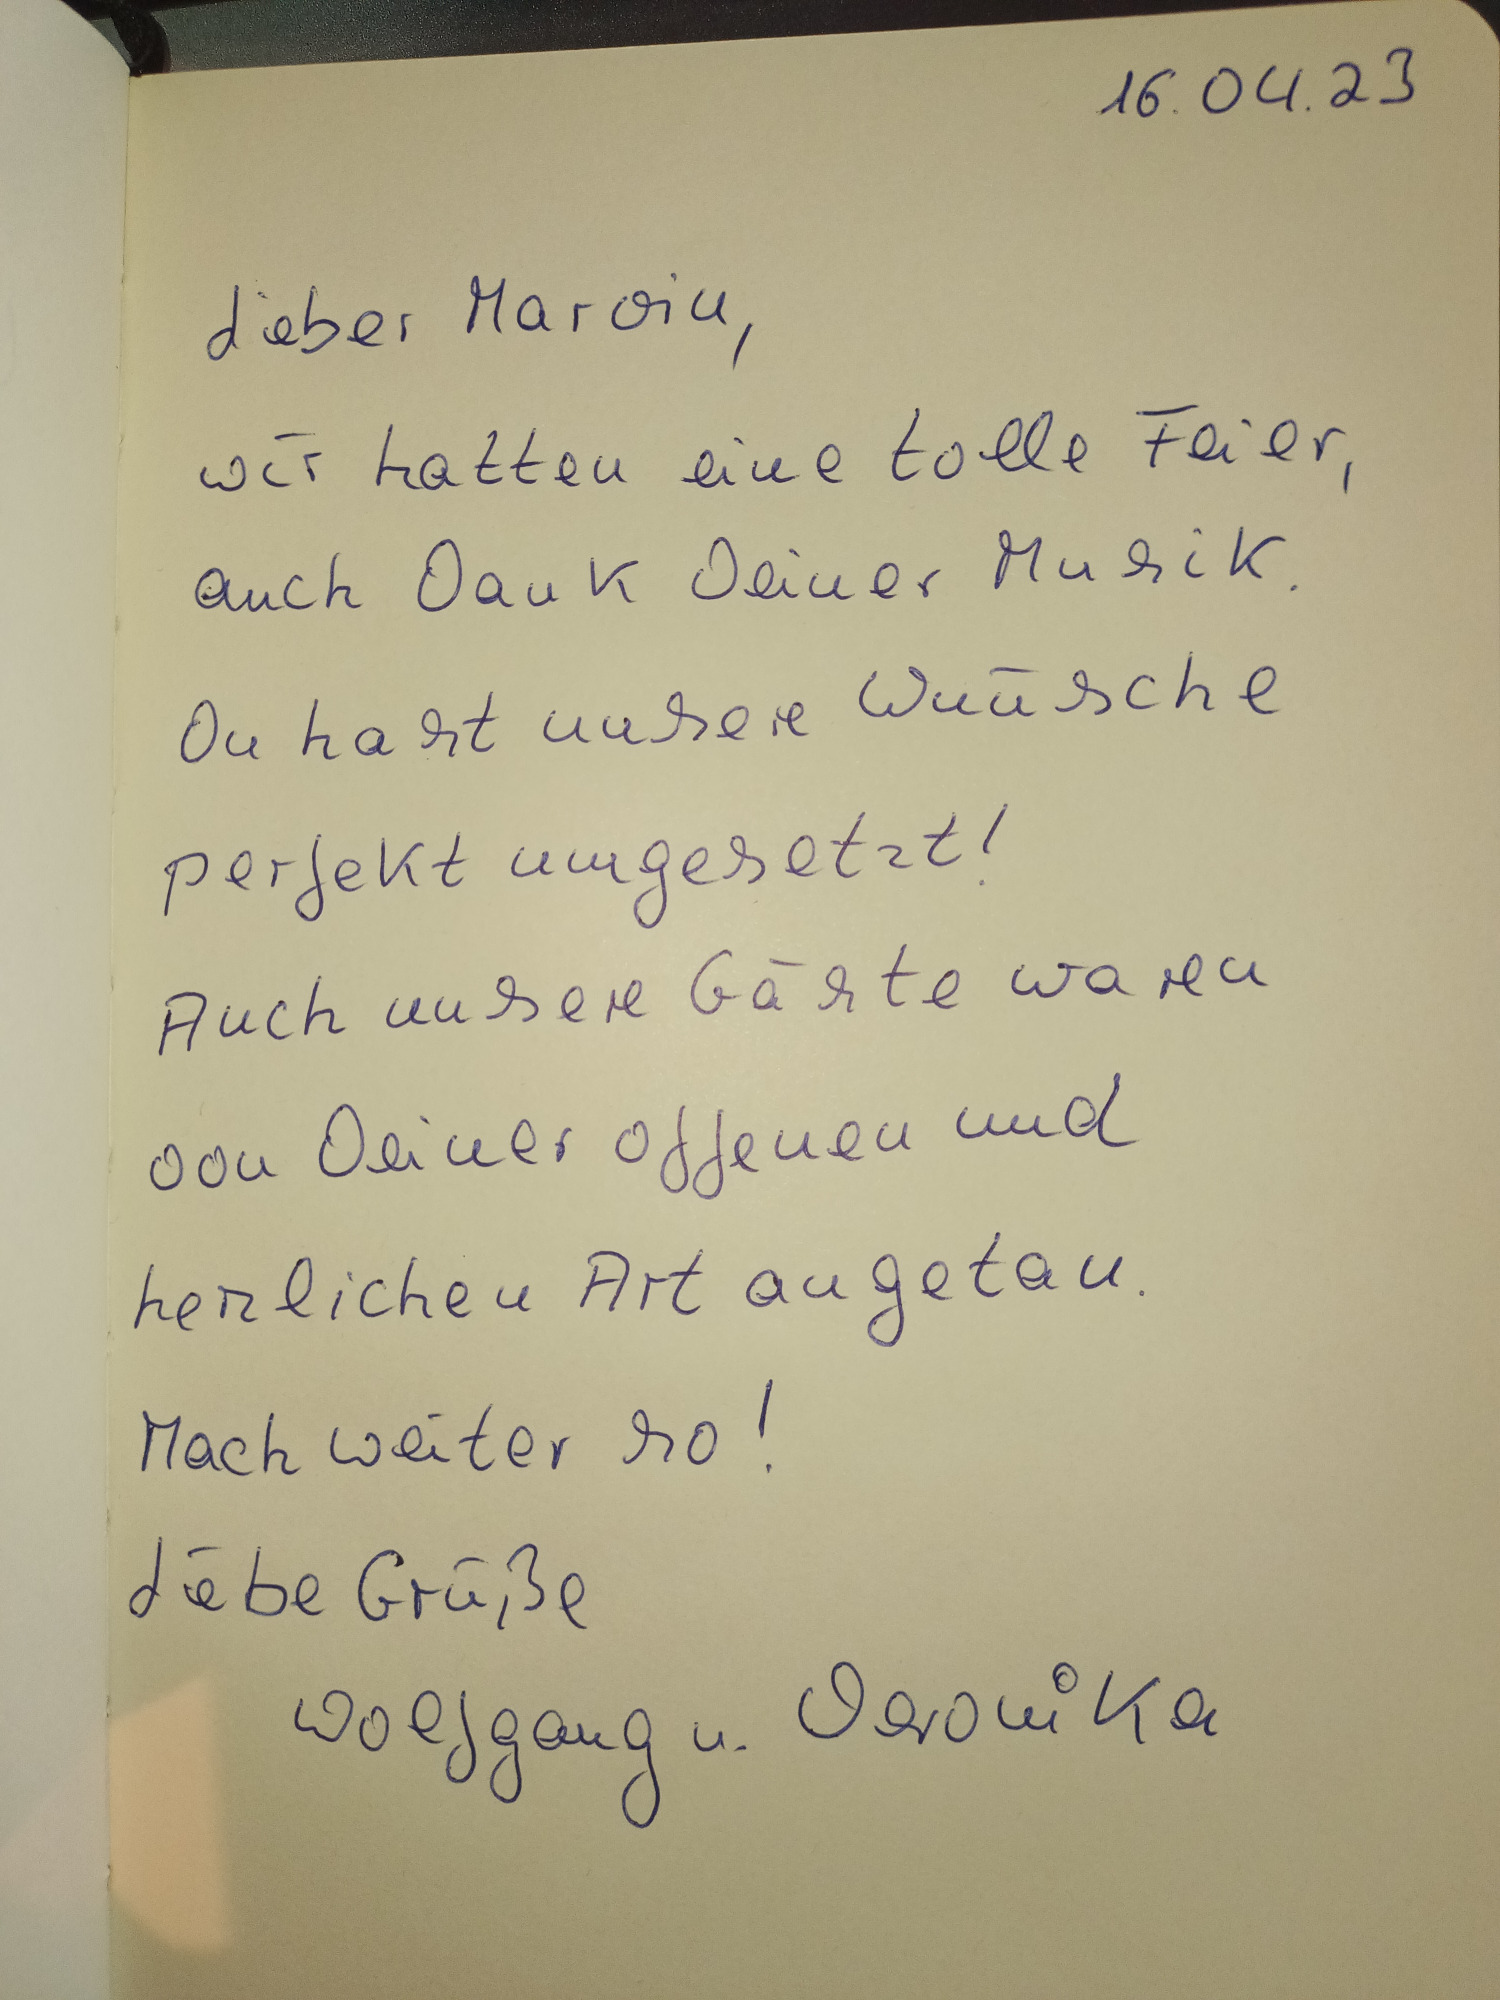 16.04.23
Lieber Marvin,
wir hatten eine tolle Feier,
auch Dank Deiner Musik.
Du hast unsere Wünsche
perfekt umgesetzt!
Auch unsere Gäste waren
von Deiner offenen und
herzlichen Art angetan.
Mach weiter so!
Liebe Grüße
Wolfgang u. Veronika